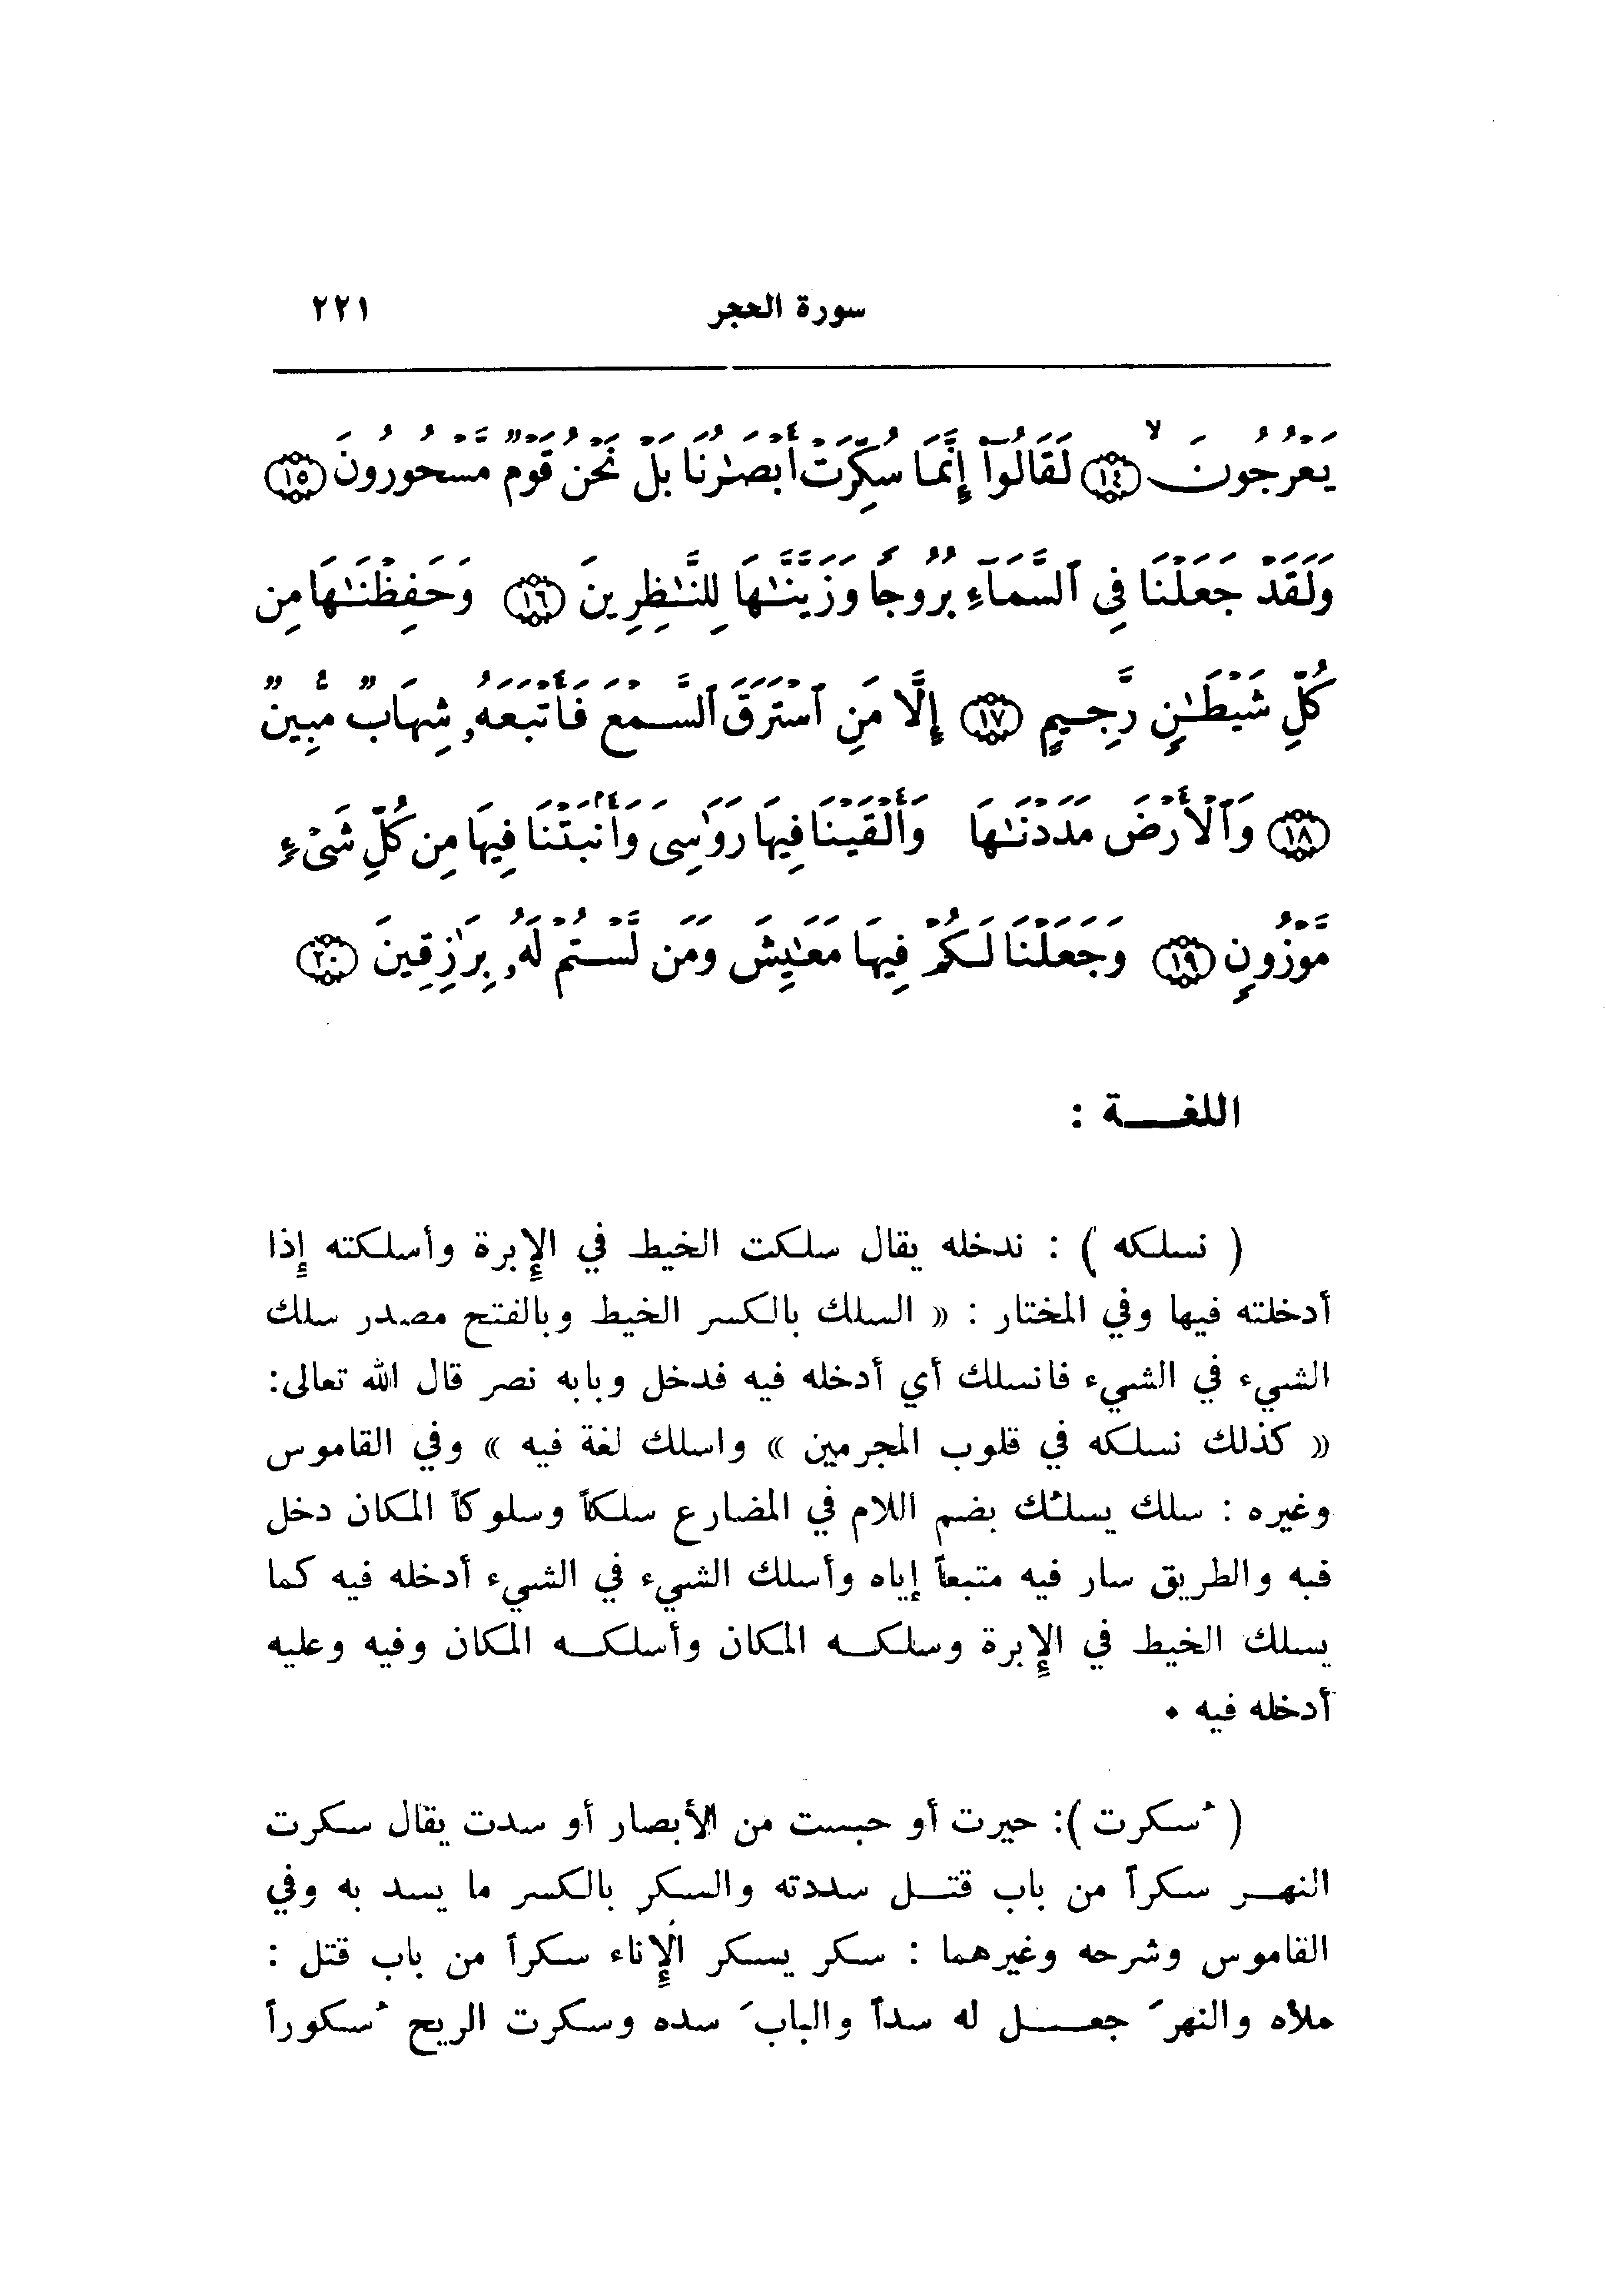 سورة الحجر ٢٢١
يَعْرُجُونَ ۙ ﴿١٤﴾ لَقَالُوٓاْ إِنَّمَا سُكِّرَتْ أَبْصَٰرُنَا بَلْ نَحْنُ قَوْمٌ مَّسْحُورُونَ ﴿١٥﴾
وَلَقَدْ جَعَلْنَا فِى ٱلسَّمَآءِ بُرُوجًا وَزَيَّنَّٰهَا لِلنَّٰظِرِينَ ﴿١٦﴾ وَحَفِظْنَٰهَا مِن
كُلِّ شَيْطَٰنٍ رَّجِيمٍ ﴿١٧﴾ إِلَّا مَنِ ٱسْتَرَقَ ٱلسَّمْعَ فَأَتْبَعَهُۥ شِهَابٌ مُّبِينٌ
﴿١٨﴾ وَٱلْأَرْضَ مَدَدْنَٰهَا وَأَلْقَيْنَا فِيهَا رَوَٰسِىَ وَأَنۢبَتْنَا فِيهَا مِن كُلِّ شَىْءٍ
مَّوْزُونٍ ﴿١٩﴾ وَجَعَلْنَا لَكُمْ فِيهَا مَعَٰيِشَ وَمَن لَّسْتُمْ لَهُۥ بِرَٰزِقِينَ ﴿٢٠﴾
اللغـــة :
( نسلكه ) : ندخله يقال سلكت الخيط في الإبرة وأسلكته إذا
أدخلته فيها وفي المختار : « السلك بالكسر الخيط وبالفتح مصدر سلك
الشيء في الشيء فانسلك أي أدخله فيه فدخل وبابه نصر قال الله تعالى:
« كذلك نسلكه في قلوب المجرمين » واسلك لغة فيه » وفي القاموس
وغيره : سلك يسلُك بضم اللام في المضارع سلكاً وسلوكاً المكان دخل
فيه والطريق سار فيه متبعاً إياه وأسلك الشيء في الشيء أدخله فيه كما
يسلك الخيط في الإبرة وسلكـه المكان وأسلكـه المكان وفيه وعليه
أدخله فيه .
( سُكرت ): حيرت أو حبست من الأبصار أو سدت يقال سكرت
النهـر سكراً من باب قتـل سددته والسكر بالكسر ما يسد به وفي
القاموس وشرحه وغيرهما : سكر يسكر الإناء سكراً من باب قتل :
ملأه والنهرَ جعـل له سداً والبابَ سده وسكرت الريح سُكوراً